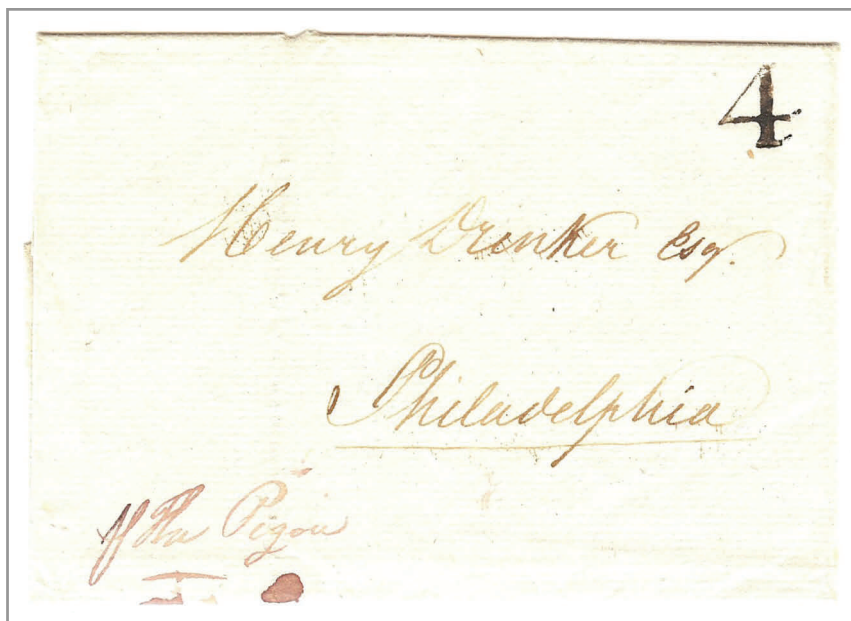 4
Henry Drinker Esqr.
Philadelphia
Pigou